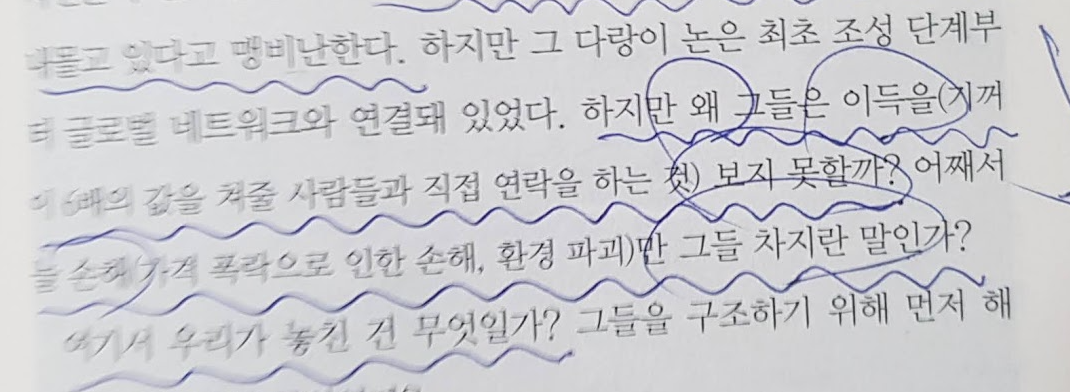 나돌고 있다고 맹비난한다. 하지만 그 다랑이 논은 최초 조성 단계부
터 글로벌 네트워크와 연결돼 있었다. 하지만 왜 그들은 이득을(기꺼
이 6배의 값을 쳐줄 사람들과 직접 연락을 하는 것) 보지 못할까? 어째서
늘 손해(가격 폭락으로 인한 손해, 환경 파괴)만 그들 차지란 말인가?
여기서 우리가 놓친 건 무엇일가? 그들을 구조하기 위해 먼저 해